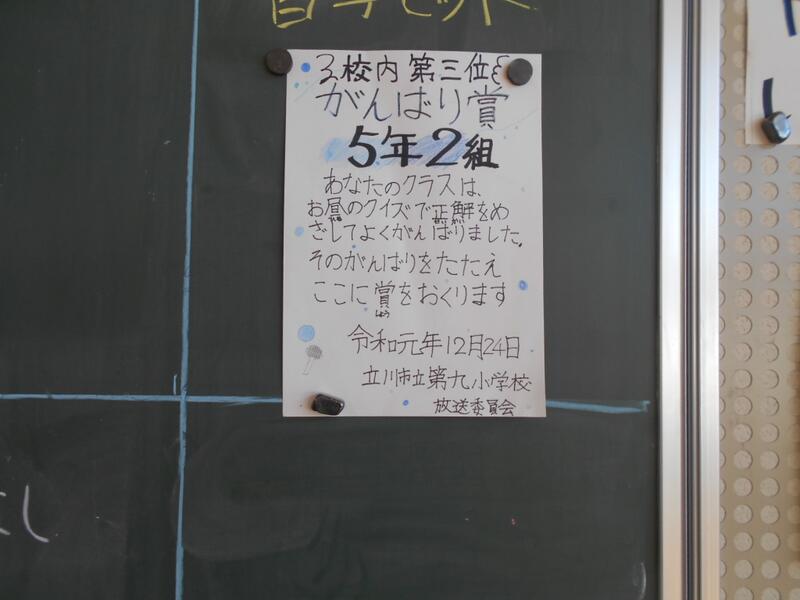 自学セット
校内第三位
がんばり賞
5年2組
あなたのクラスは、
お昼のクイズで正解をめ
ざしてよくがんばりました。
そのがんばりをたたえ
ここに賞をおくります
しょう
令和元年12月24日
立川市立第九小学校
放送委員会